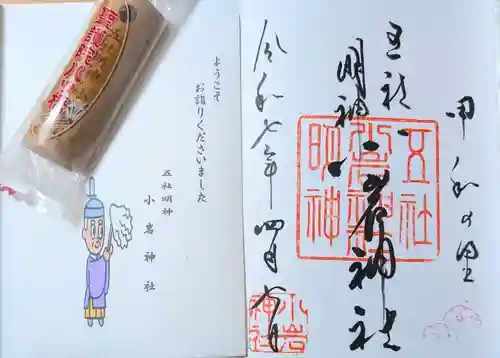 甲和の里
五社
明神
小岩神社
五社
明神
令和七年四月
小岩
神社
ようこそ
お詣りくださいました
五社明神
小岩神社